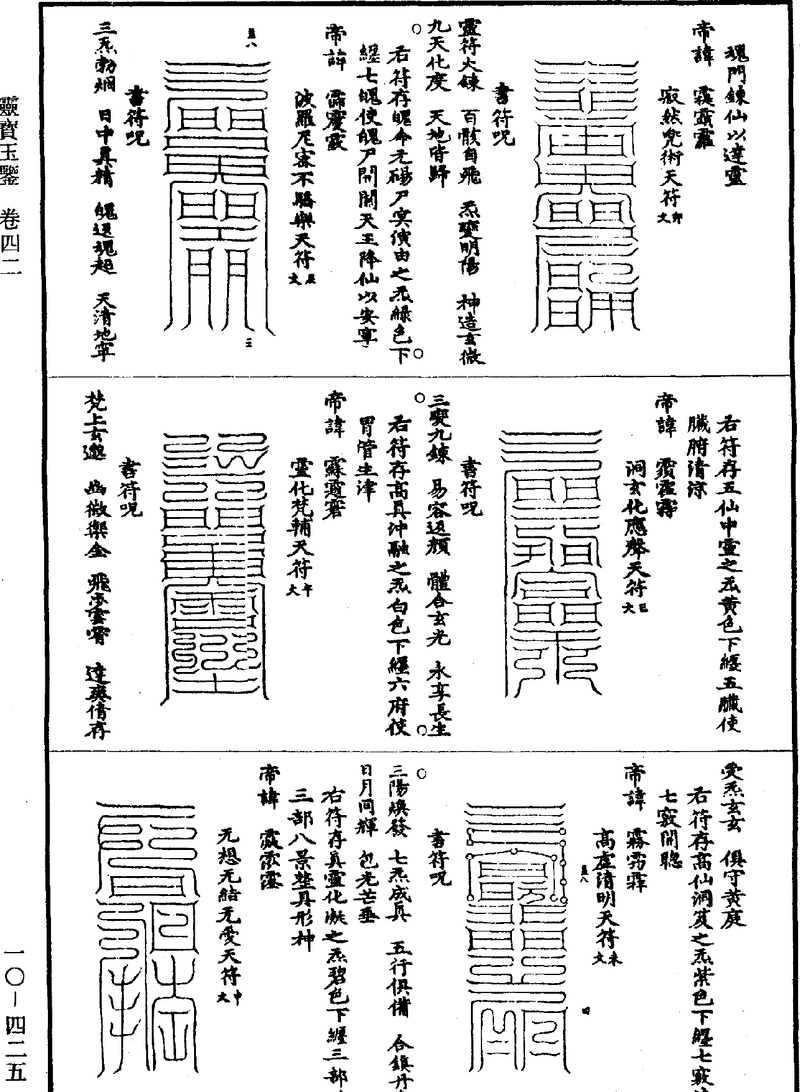 魂門鍊仙以達靈
帝諱
寂然兜術天符
文卯
書符呪
靈符火鍊 百骸自飛 炁變明陽 神造玄微
九天化度 天地皆歸
右符存魄命元碭尸冥演由之炁綠色下
纏七魄使魄尸閉關天王降仙以安寧
帝諱
波羅尼蜜不驕樂天符
文辰
五八
三
書符呪
三炁勃烟 日中真精 魄返魂起 天清地寧
右符存五仙中靈之炁黃色下纏五臟使
臟腑清涼
帝諱
洞玄化應聲天符
文巳
書符呪
三變九鍊 易容返顏 體合玄光 永享長生
右符存高真沖融之炁白色下纏六府使
胃管生津
帝諱
靈化梵輔天符
文午
書符呪
梵上玄邈 幽微樂金 飛步雲霄 達爽倩存
受炁玄玄 俱守黃庭
右符存高仙洞笈之炁紫色下纏七竅
七竅開聰
帝諱
高虛清明天符
文未
五八
四
書符呪
三陽煥發 七炁成真 五行俱備 合鎮丹
日月同輝 包光芒垂
右符存真靈化凝之炁碧色下纏三部
三部八景整具形神
帝諱
无想无結无愛天符
文申
靈寶玉鑒 卷四二
一〇—四二五